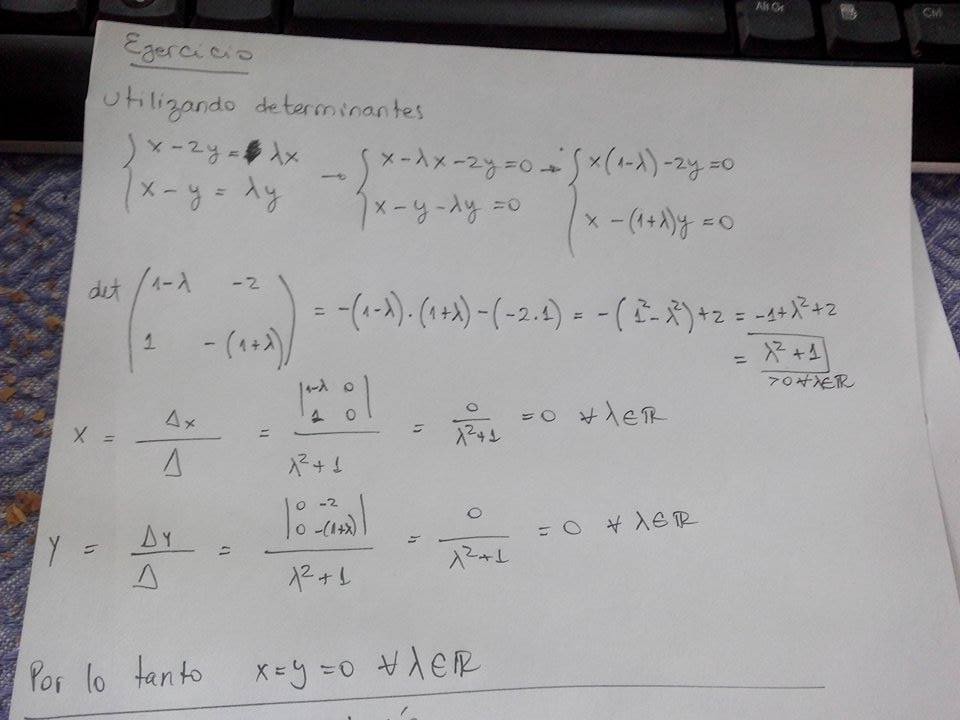 Alt Gr
Ctrl
Ejercicio
Utilizando determinantes
{ x - 2y = λx → { x - λx - 2y = 0 → { x(1-λ) - 2y = 0
{ x - y = λy { x - y - λy = 0 { x - (1+λ)y = 0
det ( 1-λ -2 ; 1 -(1+λ) ) = -(1-λ)·(1+λ) - (-2·1) = -(1² - λ²) + 2 = -1 + λ² + 2
= λ² + 1
>0 ∀ λ∈ℝ
x = Δx / Δ = | 1-λ 0 ; 1 0 | / λ² + 1 = 0 / λ²+1 = 0 ∀ λ∈ℝ
y = Δy / Δ = | 0 -2 ; 0 -(1+λ) | / λ² + 1 = 0 / λ²+1 = 0 ∀ λ∈ℝ
Por lo tanto x = y = 0 ∀ λ∈ℝ